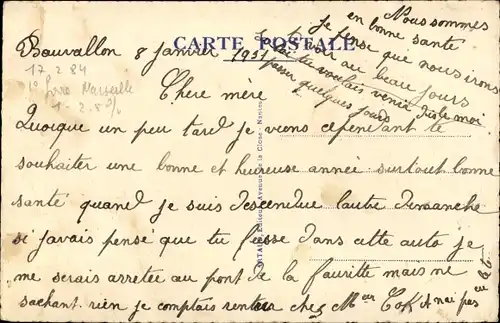 CARTE POSTALE
Beauvallon 8 janvier 1951
17 2 84
Marseille
Chere mère
Quoique un peu tard je viens cependant te
souhaiter une bonne et heureuse année surtout bonne
santé quand je suis descendue l'autre dimanche
si javais pensé que tu fusse dans cette auto je
me serais arretée au pont de la fauritte mais ne
sachant rien je comptais rentrer chez Mme n'ai pas
Nous sommes
en bonne santé
je pense que nous irons
te voir au beau jours
si tu voulais venir dis le moi
passer quelques jours